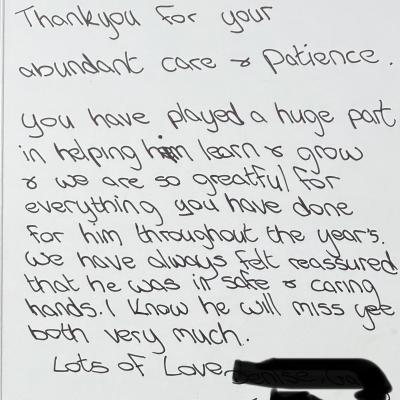 Thankyou for your
abundant care & Patience.
you have played a huge part
in helping him learn & grow
& we are so greatful for
everything you have done
for him throughout the year's.
We have always felt reassured
that he was in safe & caring
hands. I know he will miss yee
both very much.
Lots of Love